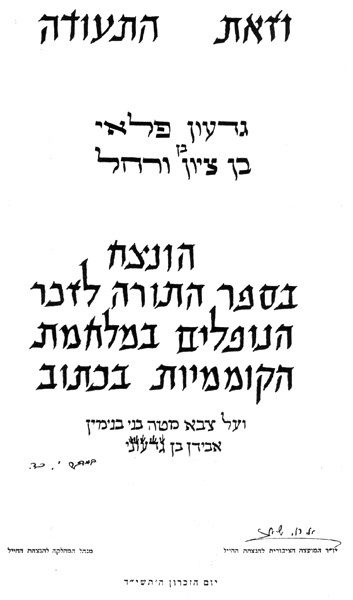 וזאת התעודה
גדעון פלאי
בן
בן ציון ורחל
הונצח
בספר התורה לזכר
הנופלים במלחמת
הקוממיות בכתוב
ועל צבא מטה בני בנימין
אבידן בן גדעוני
במדבר י׳, כד.
יו״ר המועצה הציבורית להנצחת החייל
מנהל המחלקה להנצחת החייל
יום הזכרון ה׳תשי״ד